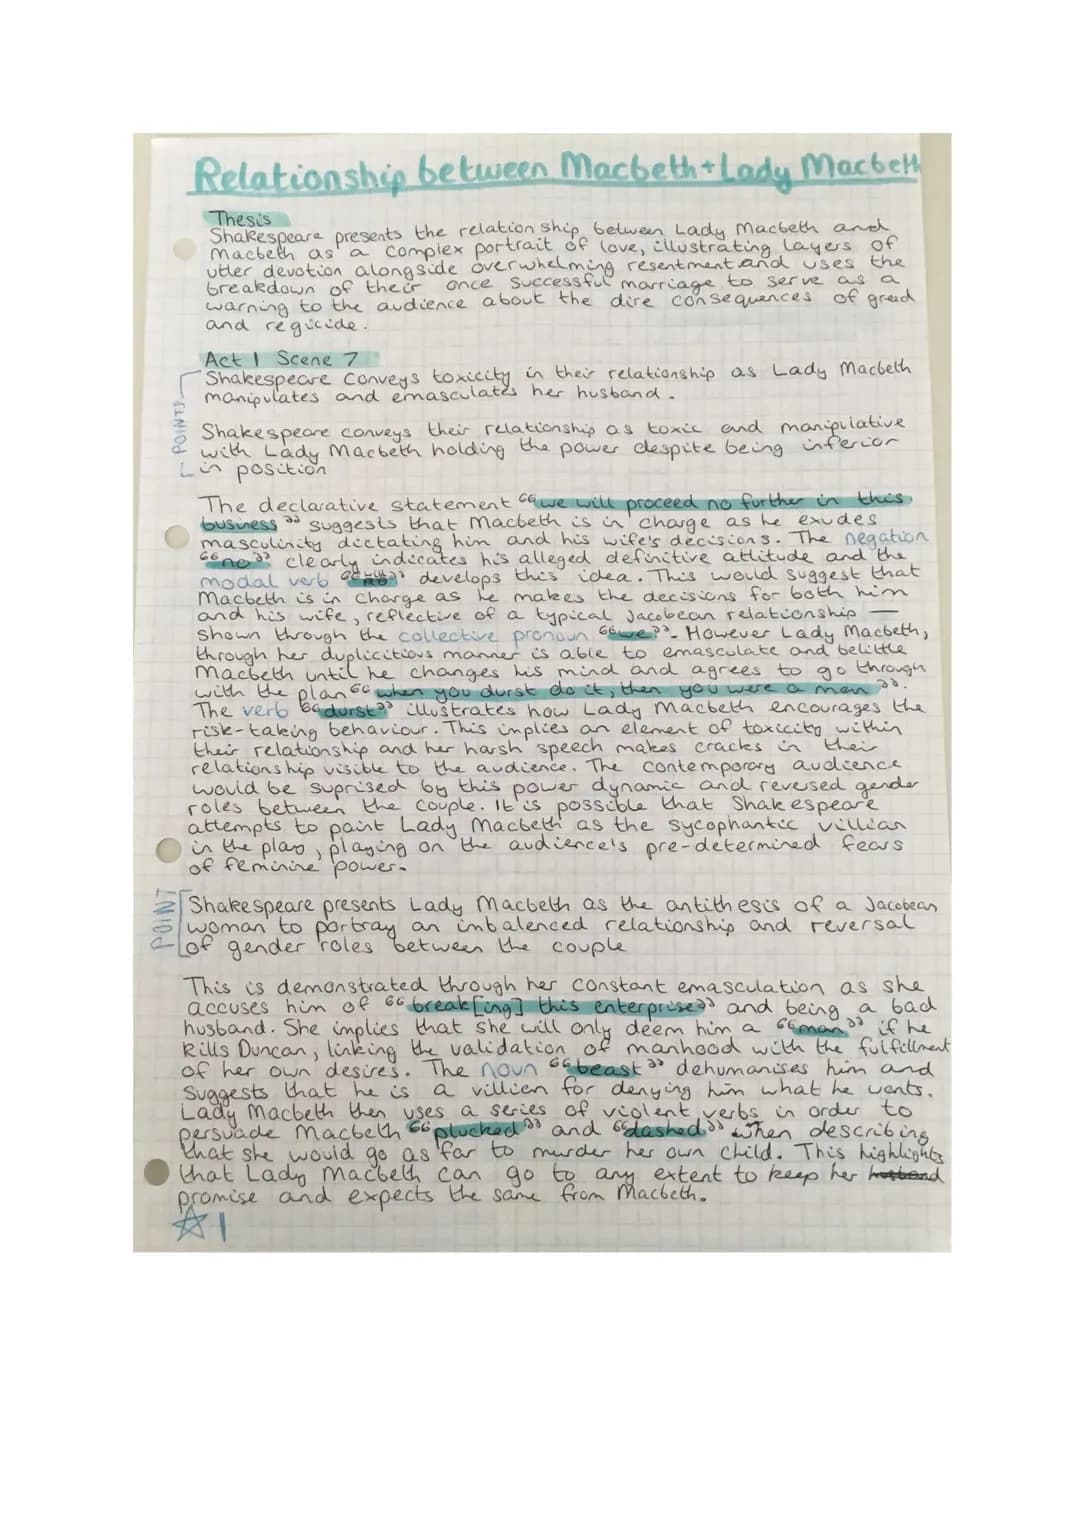 Relationship between Macbeth + Lady Macbeth
Thesis
Shakespeare presents the relationship between Lady Macbeth and
Macbeth as a complex portrait of love, illustrating layers of
utter devotion alongside overwhelming resentment and uses the
breakdown of their once successful marriage to serve as a
warning to the audience about the dire consequences of greed
and regicide.
Act 1 Scene 7
POINTS
Shakespeare conveys toxicity in their relationship as Lady Macbeth
manipulates and emasculates her husband.
Shakespeare conveys their relationship as toxic and manipulative
with Lady Macbeth holding the power despite being inferior
in position
The declarative statement "we will proceed no further in this
business" suggests that Macbeth is in charge as he exudes
masculinity dictating him and his wife's decisions. The negation
"no" clearly indicates his alleged definitive attitude and the
modal verb "will" develops this idea. This would suggest that
Macbeth is in charge as he makes the decisions for both him
and his wife, reflective of a typical Jacobean relationship —
shown through the collective pronoun "we". However Lady Macbeth,
through her duplicitious manner is able to emasculate and belittle
Macbeth until he changes his mind and agrees to go through
with the plan "when you durst do it, then you were a man".
The verb "durst" illustrates how Lady Macbeth encourages the
risk-taking behaviour. This implies an element of toxicity within
their relationship and her harsh speech makes cracks in their
relationship visible to the audience. The contemporary audience
would be suprised by this power dynamic and reversed gender
roles between the couple. It is possible that Shakespeare
attempts to paint Lady Macbeth as the sycophantic villian
in the play, playing on the audience's pre-determined fears
of feminine power.
POINT
Shakespeare presents Lady Macbeth as the antithesis of a Jacobean
woman to portray an imbalenced relationship and reversal
of gender roles between the couple
This is demonstrated through her constant emasculation as she
accuses him of "break[ing] this enterprise" and being a bad
husband. She implies that she will only deem him a "man" if he
kills Duncan, linking the validation of manhood with the fulfillment
of her own desires. The noun "beast" dehumanises him and
suggests that he is a villien for denying him what he wants.
Lady Macbeth then uses a series of violent verbs in order to
persuade Macbeth "plucked" and "dashed" when describing
that she would go as far to murder her own child. This highlights
that Lady Macbeth can go to any extent to keep her husband
promise and expects the same from Macbeth.
☆1